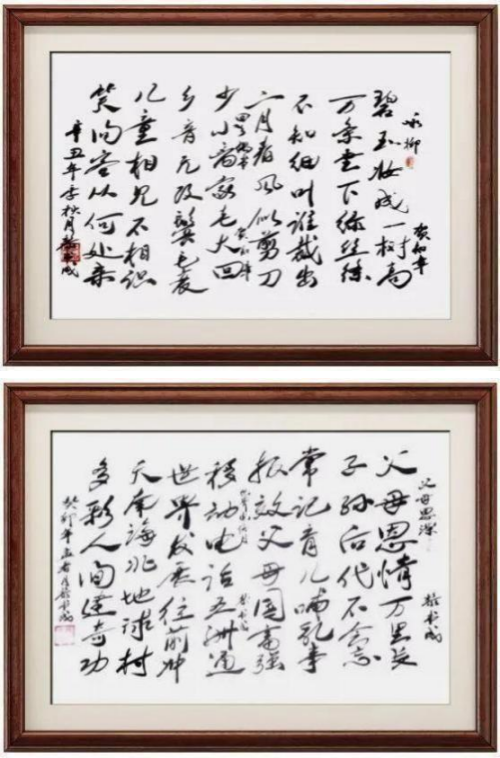 咏柳
贺知章
碧玉妆成一树高
万条垂下绿丝绦
不知细叶谁裁出
二月春风似剪刀
回乡偶书
贺知章
少小离家老大回
乡音无改鬓毛衰
儿童相见不相识
笑问客从何处来
辛丑年季秋月
父母恩深
父母恩情万里长
子孙后代不会忘
常记育儿哺乳事
报效父母国富强
移动电话五洲通
世界发展往前冲
天南海北地球村
多彩人间建奇功
癸卯年孟春月